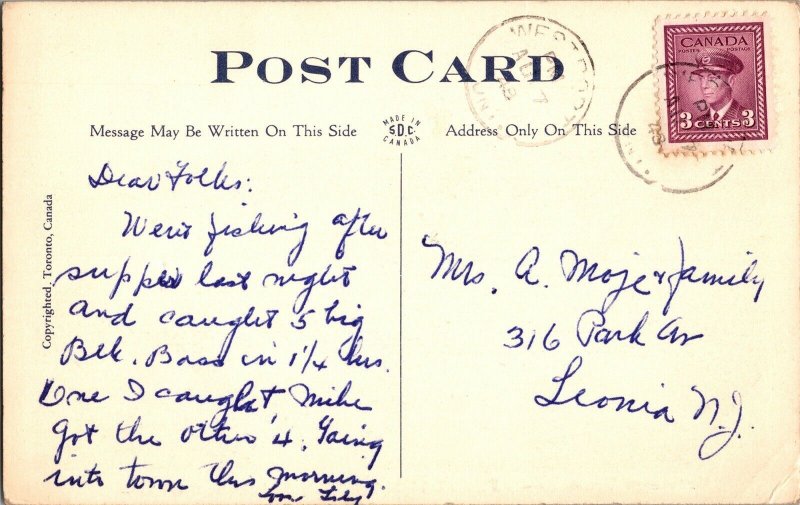 POST CARD
Message May Be Written On This Side
MADE IN
S.D.C.
CANADA
Address Only On This Side
WESTPORT
PM
7
48
ONT
CANADA
POSTES POSTAGE
3 CENTS 3
Copyrighted, Toronto, Canada
Dear Folks:
Went fishing after
supper last night
and caught 5 big
Blk. Bass in 1 1/4 hrs.
One I caught, Mike
got the other 4. Going
into town this morning.
Mrs. A. Moje & family
316 Park Av
Leonia N.J.